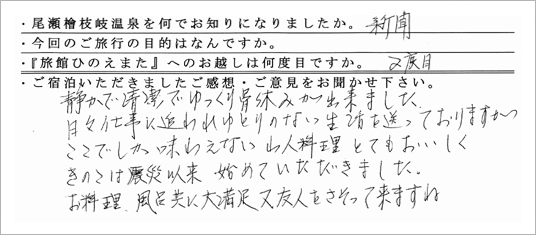 ・尾瀬檜枝岐温泉を何でお知りになりましたか。 新聞
・今回のご旅行の目的はなんですか。
・『旅館ひのえまた』へのお越しは何度目ですか。 2度目
・ご宿泊いただきましたご感想・ご意見をお聞かせ下さい。
静かで清潔でゆっくり骨休みが出来ました。
日々仕事に追われゆとりのない生活を送っておりますが
ここでしか味わえない山人料理とてもおいしく
きのこは震災以来 始めていただきました。
お料理、風呂共に大満足 又友人をさそって来ますね